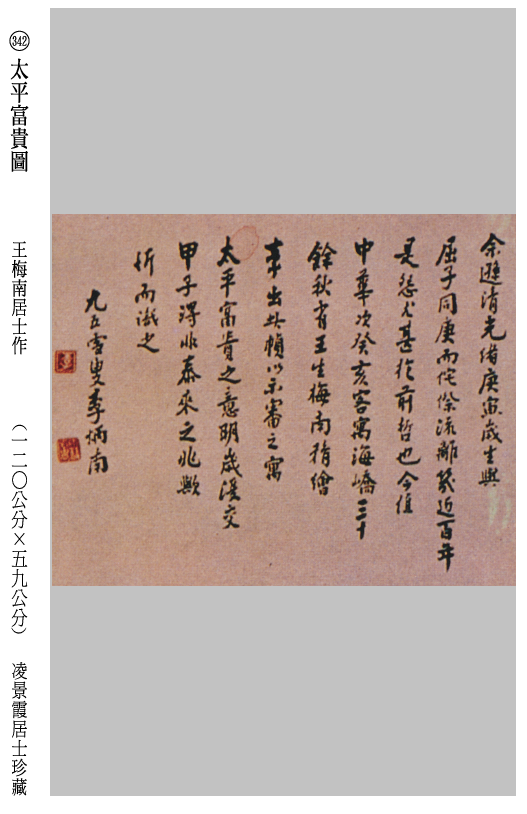 342 太平富貴圖
王梅南居士作
（一二〇公分×五九公分）
凌景霞居士珍藏
余遜清光緒庚寅歲生與
屈子同庚而侘傺流離幾近百年
是愁尤甚於前哲也今值
中華次癸亥客寓海嶠三十
餘秋有王生梅南精繪
出此幀以示審之寓
太平富貴之意明歲交
甲子得非泰來之兆歟
忻而識之
九五雪叟李炳南